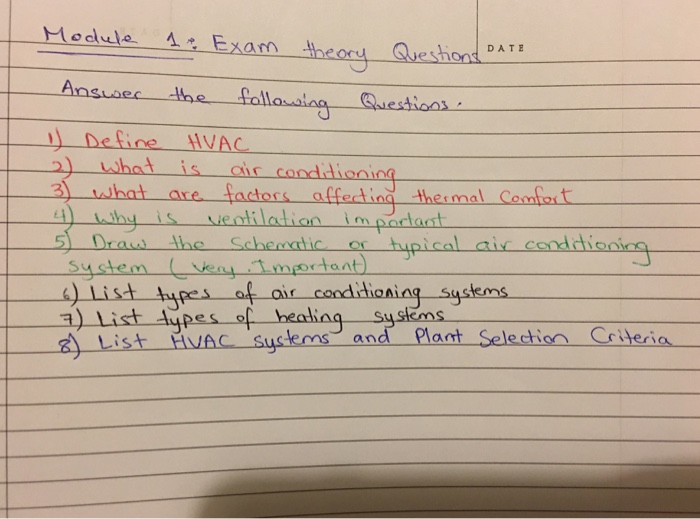 Module 1: Exam theory Questions DATE
Answer the following Questions.
1) Define HVAC
2) what is air conditioning
3) what are factors affecting thermal Comfort
4) why is ventilation important
5) Draw the Schematic or typical air conditioning
system (very Important)
6) List types of air conditioning systems
7) List types of heating systems
8) List HVAC systems and Plant Selection Criteria